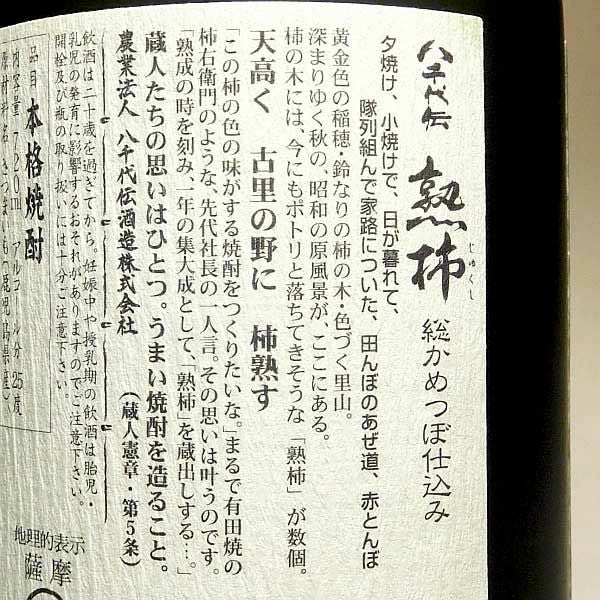 八千代伝 熟柿 総かめつぼ仕込み
じゅくし
夕焼け、小焼けで、日が暮れて、
隊列組んで家路についた、田んぼのあぜ道、赤とんぼ
黄金色の稲穂・鈴なりの柿の木・色づく里山。
深まりゆく秋の、昭和の原風景が、ここにある。
柿の木には、今にもポトリと落ちてきそうな「熟柿」が数個。
天高く 古里の野に 柿熟す
「この柿の色の味がする焼酎をつくりたいな。」まるで有田焼の
柿右衛門のような、先代社長の一人言。その思いは叶うのです。
「熟成の時を刻み、一年の集大成として、「熟柿」を蔵出しする…。」
蔵人たちの思いはひとつ。うまい焼酎を造ること。
農業法人 八千代伝酒造株式会社 (蔵人憲章・第5条)
飲酒は二十歳を過ぎてから。妊娠中や授乳期の飲酒は胎児・
乳児の発育に影響するおそれがありますのでご注意下さい。
開栓及び瓶の取り扱いには十分ご注意下さい。
品目 本格焼酎
内容量 720ml アルコール分 25度
原材料名 さつまいも(鹿児島県産)
地理的表示
薩摩